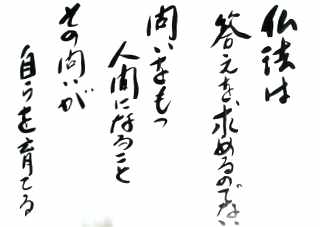 仏法は
答えを求めるのでない
問いをもつ
人間になること
その問いが
自らを育てる